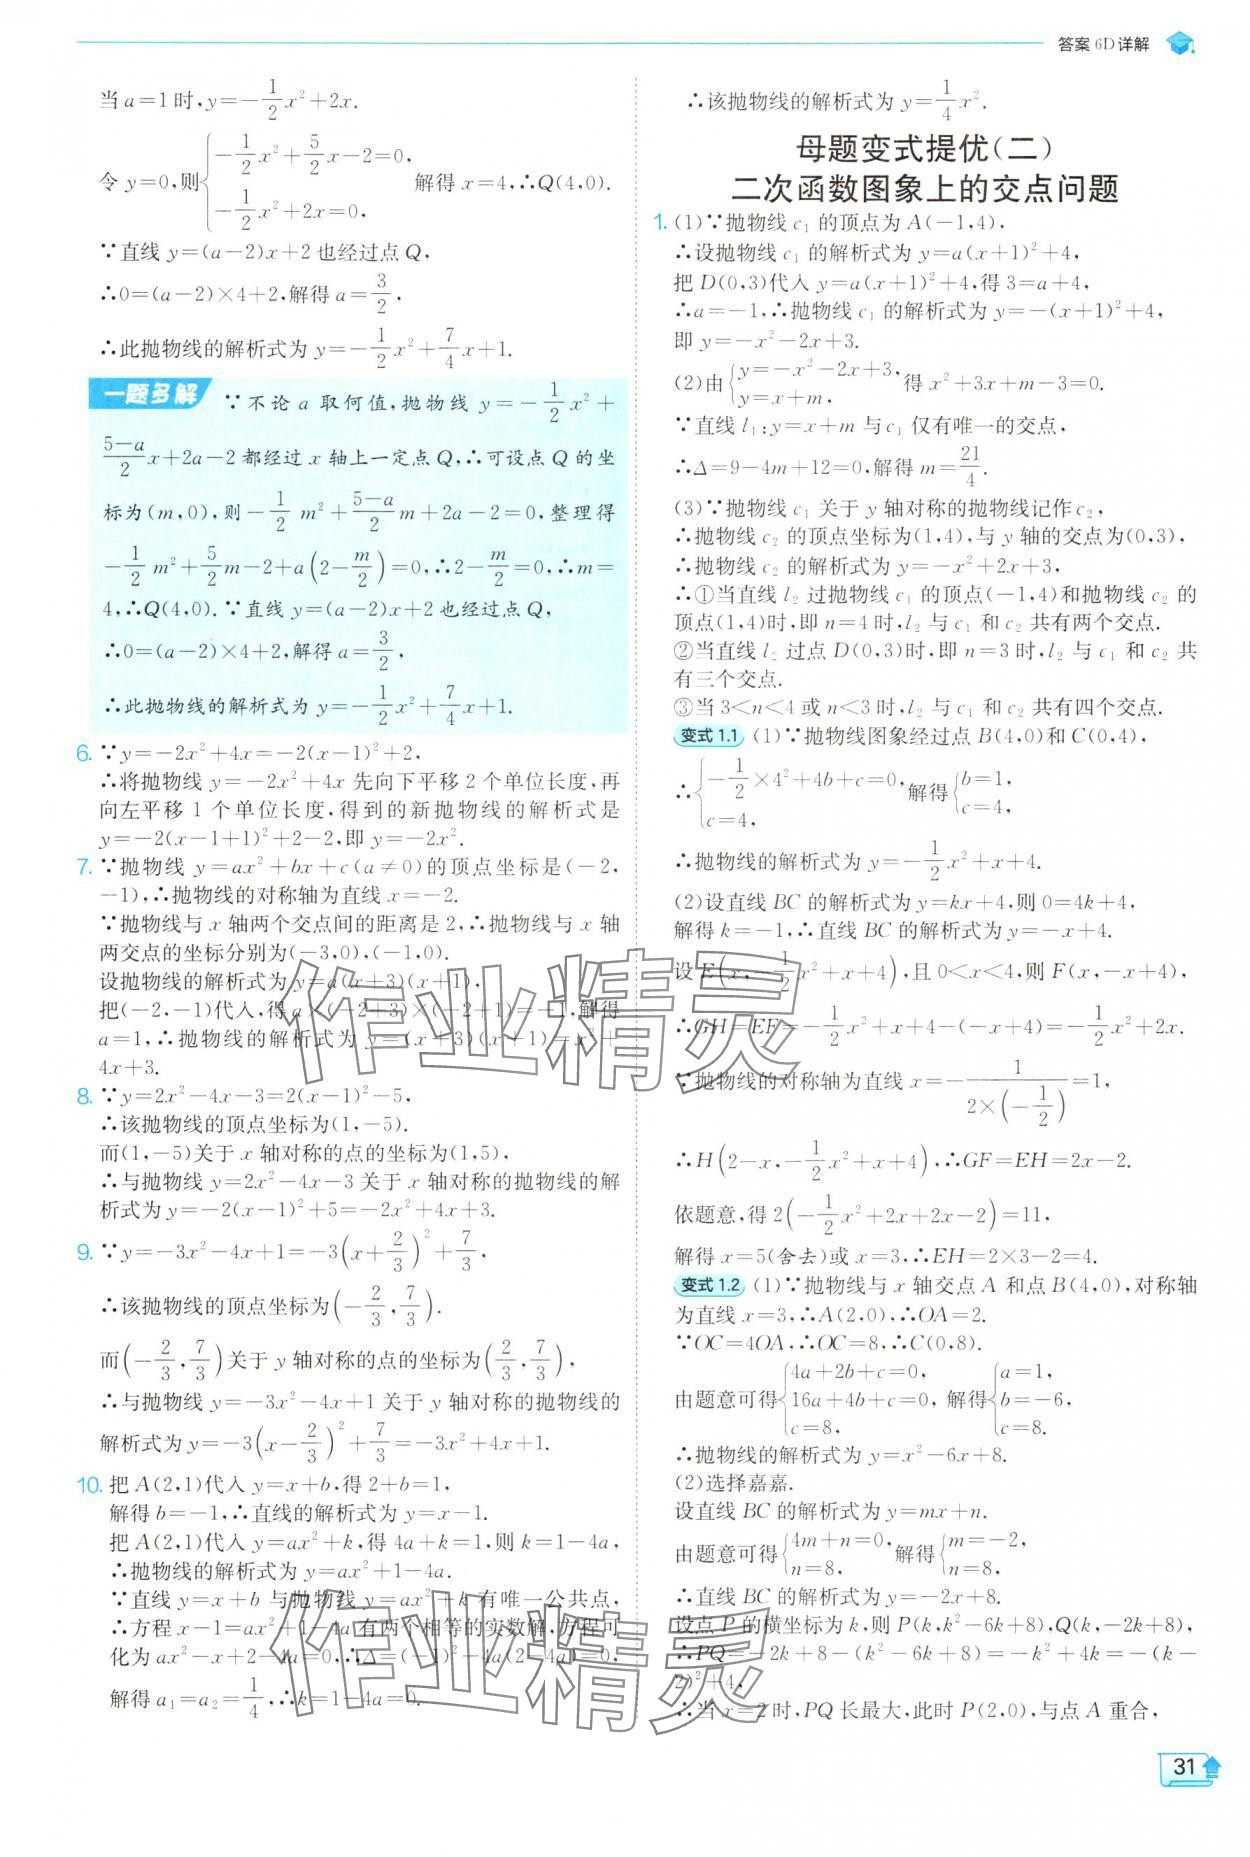 答案 6D详解
当 a=1 时, y=-1/2x²+2x.
令 y=0, 则{-1/2x²+5/2x-2=0, -1/2x²+2x=0, 解得 x=4, ∴Q(4,0).
∵直线 y=(a-2)x+2 也经过点 Q,
∴0=(a-2)×4+2, 解得 a=3/2,
∴此抛物线的解析式为 y=-1/2x²+7/4x+1.
一题多解 ∵不论 a 取何值, 抛物线 y=-1/2x²+
(5-a)/2x+2a-2 都经过 x 轴上一定点 Q, ∴可设点 Q 的坐
标为(m,0), 则-1/2m²+(5-a)/2m+2a-2=0, 整理得
-1/2m²+5/2m-2+a(2-m/2)=0, ∴2-m/2=0, ∴m=
4, ∴Q(4,0). ∵直线 y=(a-2)x+2 也经过点 Q,
∴0=(a-2)×4+2, 解得 a=3/2,
∴此抛物线的解析式为 y=-1/2x²+7/4x+1.
6. ∵y=-2x²+4x=-2(x-1)²+2,
∴将抛物线 y=-2x²+4x 先向下平移 2 个单位长度, 再
向左平移 1 个单位长度, 得到的新抛物线的解析式是
y=-2(x-1+1)²+2-2, 即 y=-2x².
7. ∵抛物线 y=ax²+bx+c(a≠0)的顶点坐标是(-2,
-1), ∴抛物线的对称轴为直线 x=-2.
∵抛物线与 x 轴两个交点间的距离是 2, ∴抛物线与 x 轴
两交点的坐标分别为(-3,0),(-1,0).
设抛物线的解析式为 y=a(x+3)(x+1),
把(-2,-1)代入, 得 a×(-2+3)×(-2+1)=-1, 解得
a=1, ∴抛物线的解析式为 y=(x+3)(x+1)=x²+
4x+3.
8. ∵y=2x²-4x-3=2(x-1)²-5,
∴该抛物线的顶点坐标为(1,-5).
而(1,-5)关于 x 轴对称的点的坐标为(1,5),
∴与抛物线 y=2x²-4x-3 关于 x 轴对称的抛物线的解
析式为 y=-2(x-1)²+5=-2x²+4x+3.
9. ∵y=-3x²-4x+1=-3(x+2/3)²+7/3,
∴该抛物线的顶点坐标为(-2/3,7/3).
而(-2/3,7/3)关于 y 轴对称的点的坐标为(2/3,7/3),
∴与抛物线 y=-3x²-4x+1 关于 y 轴对称的抛物线的
解析式为 y=-3(x-2/3)²+7/3=-3x²+4x+1.
10. 把 A(2,1)代入 y=x+b, 得 2+b=1,
解得 b=-1, ∴直线的解析式为 y=x-1.
把 A(2,1)代入 y=ax²+k, 得 4a+k=1, 则 k=1-4a,
∴抛物线的解析式为 y=ax²+1-4a.
∵直线 y=x+b 与抛物线 y=ax²+k 有唯一公共点,
∴方程 x-1=ax²+1-4a 有两个相等的实数解, 方程可
化为 ax²-x+2-4a=0, ∴Δ=(-1)²-4a(2-4a)=0,
解得 a₁=a₂=1/4, ∴k=1-4a=0.
∴该抛物线的解析式为 y=1/4x².
母题变式提优(二)
二次函数图象上的交点问题
1. (1)∵抛物线 c₁ 的顶点为 A(-1,4),
∴设抛物线 c₁ 的解析式为 y=a(x+1)²+4,
把 D(0,3)代入 y=a(x+1)²+4, 得 3=a+4,
∴a=-1, ∴抛物线 c₁ 的解析式为 y=-(x+1)²+4,
即 y=-x²-2x+3.
(2)由{y=-x²-2x+3, y=x+m, 得 x²+3x+m-3=0.
∵直线 l₁:y=x+m 与 c₁ 仅有唯一的交点,
∴Δ=9-4m+12=0, 解得 m=21/4.
(3)∵抛物线 c₁ 关于 y 轴对称的抛物线记作 c₂,
∴抛物线 c₂ 的顶点坐标为(1,4), 与 y 轴的交点为(0,3),
∴抛物线 c₂ 的解析式为 y=-x²+2x+3,
∴①当直线 l₂ 过抛物线 c₁ 的顶点(-1,4)和抛物线 c₂ 的
顶点(1,4)时, 即 n=4 时, l₂ 与 c₁ 和 c₂ 共有两个交点.
②当直线 l₂ 过点 D(0,3)时, 即 n=3 时, l₂ 与 c₁ 和 c₂ 共
有三个交点.
③当 3<n<4 或 n<3 时, l₂ 与 c₁ 和 c₂ 共有四个交点.
变式 1.1 (1)∵抛物线图象经过点 B(4,0)和 C(0,4),
∴{-1/2×4²+4b+c=0, c=4, 解得{b=1, c=4,
∴抛物线的解析式为 y=-1/2x²+x+4.
(2)设直线 BC 的解析式为 y=kx+4, 则 0=4k+4,
解得 k=-1, ∴直线 BC 的解析式为 y=-x+4.
设 E(x,-1/2x²+x+4), 且 0<x<4, 则 F(x,-x+4),
∴GH=EF=-1/2x²+x+4-(-x+4)=-1/2x²+2x.
∵抛物线的对称轴为直线 x=-1/(2×(-1/2))=1,
∴H(2-x,-1/2x²+x+4), ∴GF=EH=2x-2.
依题意, 得 2(-1/2x²+2x+2x-2)=11,
解得 x=5(舍去)或 x=3, ∴EH=2×3-2=4.
变式 1.2 (1)∵抛物线与 x 轴交点 A 和点 B(4,0), 对称轴
为直线 x=3, ∴A(2,0), ∴OA=2.
∵OC=4OA, ∴OC=8, ∴C(0,8).
由题意可得{4a+2b+c=0, 16a+4b+c=0, c=8, 解得{a=1, b=-6, c=8,
∴抛物线的解析式为 y=x²-6x+8.
(2)选择嘉嘉.
设直线 BC 的解析式为 y=mx+n.
由题意可得{4m+n=0, n=8, 解得{m=-2, n=8,
∴直线 BC 的解析式为 y=-2x+8.
设点 P 的横坐标为 k, 则 P(k,k²-6k+8), Q(k,-2k+8),
∴PQ=-2k+8-(k²-6k+8)=-k²+4k=-(k-
2)²+4,
∴当 x=2 时, PQ 长最大, 此时 P(2,0), 与点 A 重合,
作业精灵
作业精灵
31